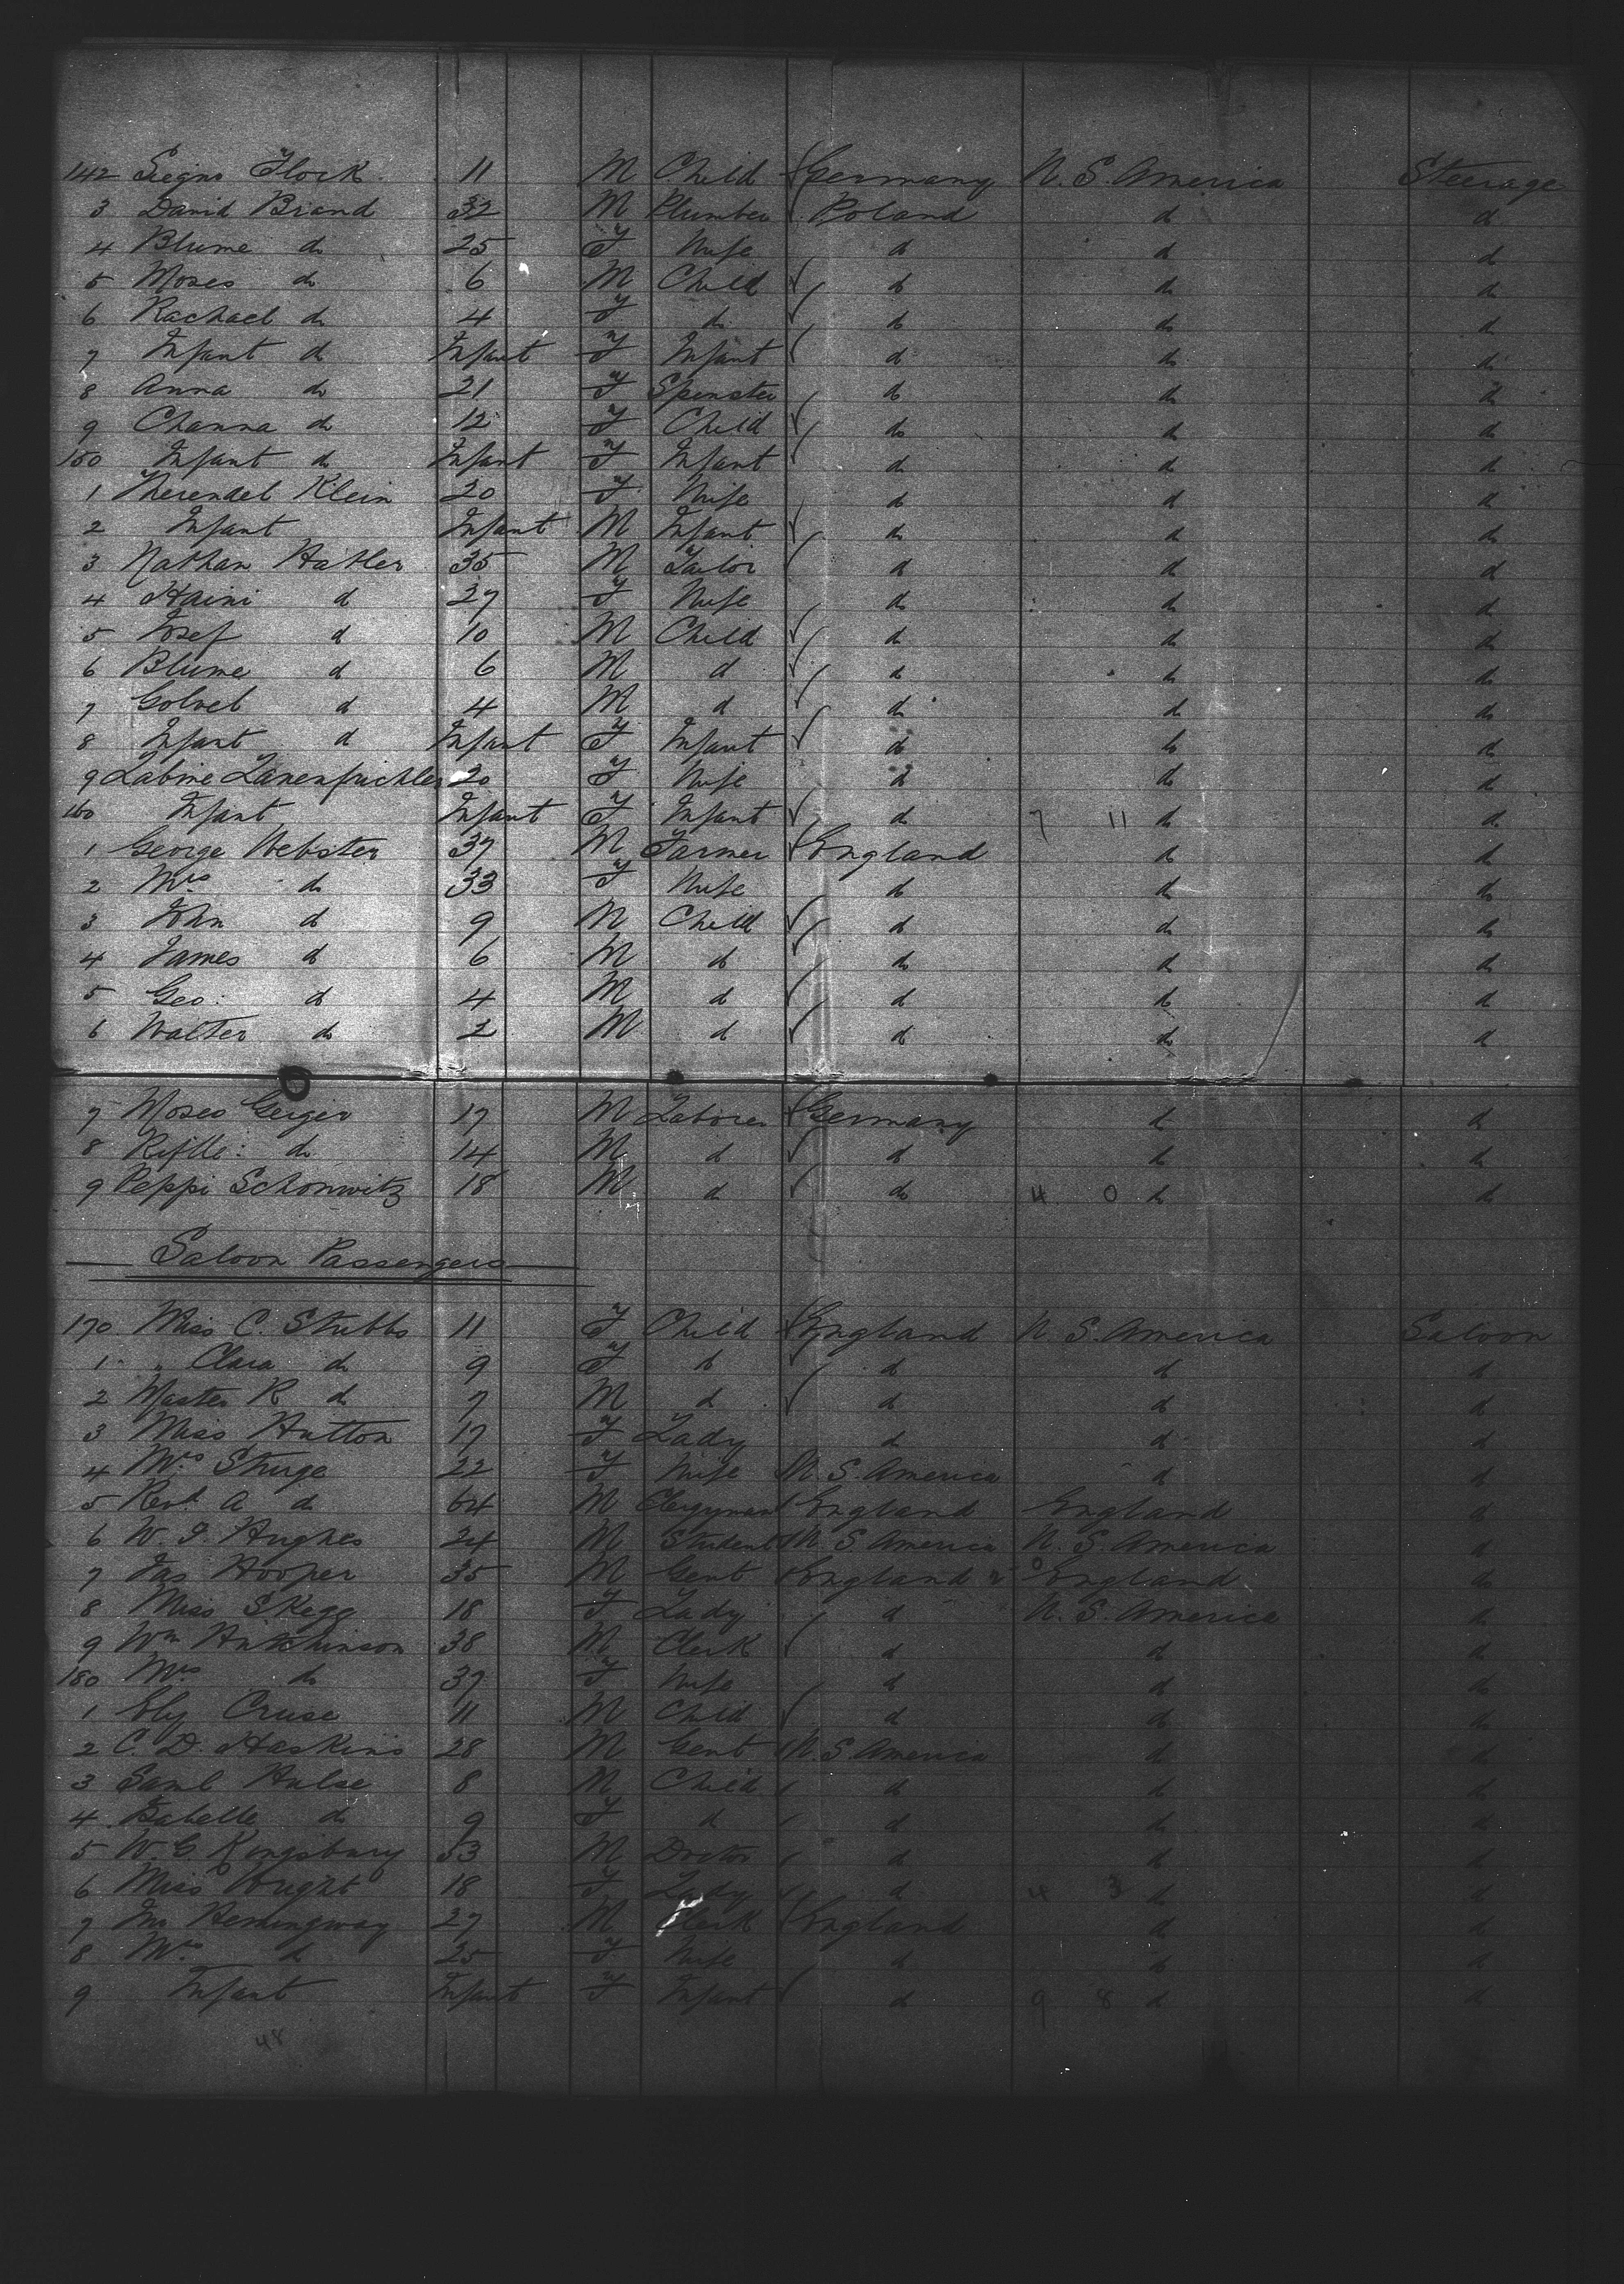 142 Siegm Flock 11 M Child Germany N. S. America Steerage
3 David Briand 32 M Plumber Poland d d
4 Blume do 25 F Wife d d d
5 Moses do 6 M Child do do do
6 Rachael do 4 F do do do do
7 Infant do Infant F Infant do do do
8 Anna do 21 F Spinster do do d
9 Channa do 12 F Child do do do
150 Infant do Infant F Infant d do do
1 Klein 20 F Wife do d do
2 Infant Infant M Infant do do do
3 Nathan Hatler 35 M Tailor d do d
4 Haini d 27 F Wife do do do
5 Josef d 10 M Child d do do
6 Blume d 6 M d d do do
7 d 4 M d do do do
8 Infant d Infant F Infant do do do
9 20 F Wife d do do
160 Infant Infant F Infant d 7 11 do do
1 George Webster 37 M Farmer England do d
2 Mrs do 33 F Wife do do do
3 John d 9 M Child d do do
4 James d 6 M do do do do
5 Geo: do 4 M d d do d
6 Walter do 2 M d do do d
7 Moses Geiger 17 M Laborer Germany d d
8 do 14 M d do do do
9 Peppi Schonwitz 18 M d do 4 0 do do
Saloon Passengers
170 Miss C. Stubbs 11 F Child England N. S. America Saloon
1 " Clara do 9 F do d do d
2 Master R do 7 M d d do d
3 Miss Hutton 17 F Lady d d d
4 Mrs Sturge 22 F Wife N. S. America d d
5 Revd A do 64 M Clergyman England England d
6 W. J. Hughes 24 M Student N S America N. S. America d
7 Jas Hooper 35 M Gent England England do
8 Miss Skegg 18 F Lady d N. S. America do
9 Wm Hutchinson 38 M Clerk d do do
180 Mrs do 37 F Wife d do do
1 Ely Cruse 11 M Child d do do
2 C. D. Haskins 28 M Gent N. S America do do
3 Saml Hulse 8 M Child d do do
4 Isabelle do 9 F d d do do
5 W. G. Kingsbury 53 M Doctor d do d
6 Miss Wright 18 F Lady d 4 3 do d
7 Hemingway 27 M Clerk England do d
8 Mrs d 25 F Wife d do d
9 Infant Infant F Infant d 9 8 d d
48